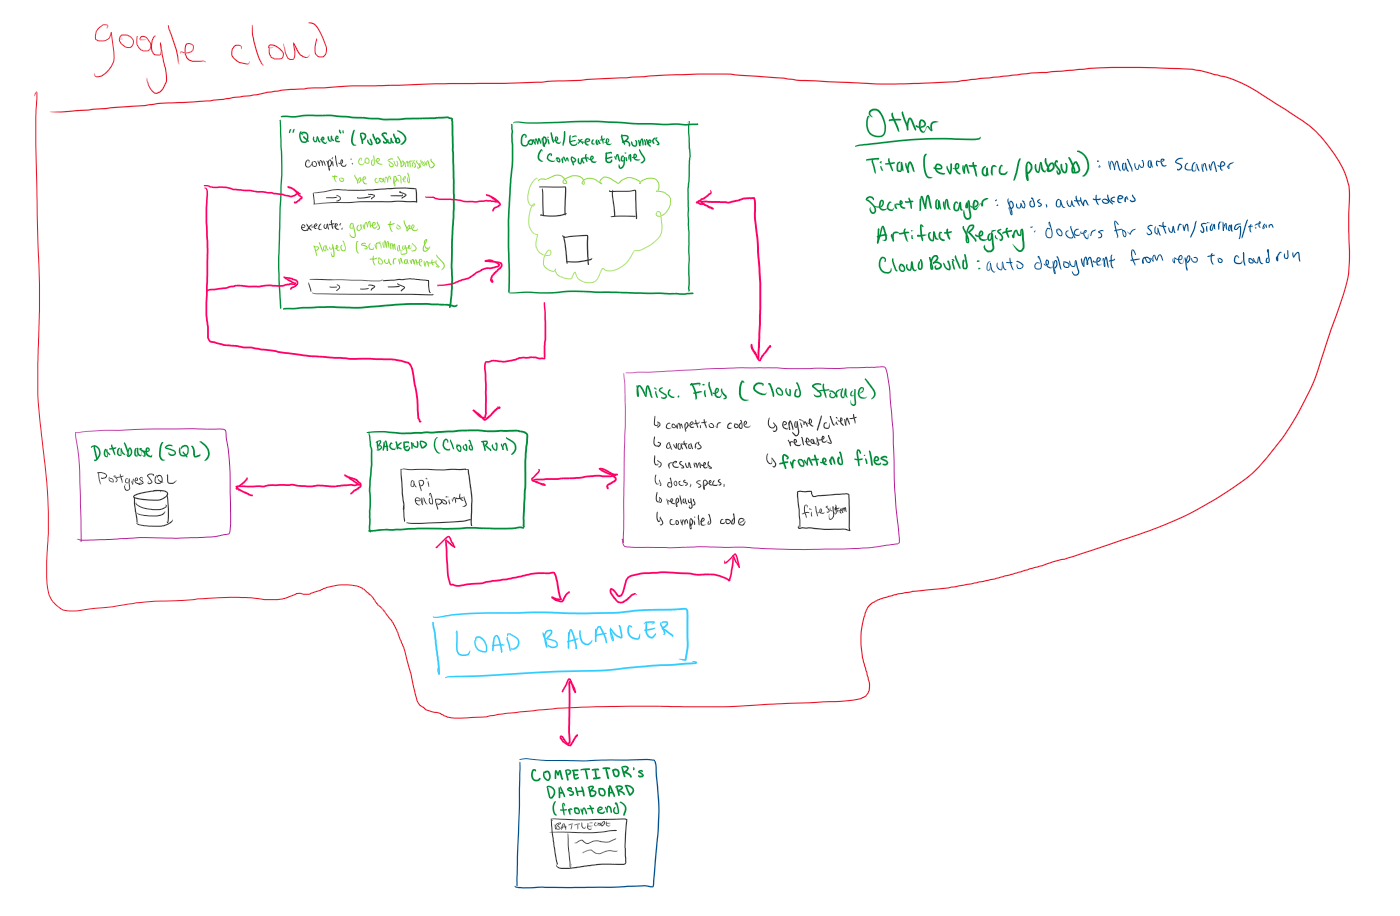 google cloud
"Queue" (PubSub)
compile: code submissions
to be compiled
execute: games to be
played (scrimmages &
tournaments)
Compile/Execute Runners
(Compute Engine)
Other
Titan (eventarc/pubsub): malware scanner
Secret Manager: pwds, auth tokens
Artifact Registry: dockers for saturn/siarnaq/titan
Cloud Build: auto deployment from repo to cloud run
Database (SQL)
PostgresSQL
BACKEND (Cloud Run)
api
endpoints
Misc. Files (Cloud Storage)
↳ competitor code
↳ avatars
↳ resumes
↳ docs, specs,
↳ replays
↳ compiled code
↳ engine/client
releases
↳ frontend files
file system
LOAD BALANCER
COMPETITOR'S
DASHBOARD
(frontend)
BATTLECODE